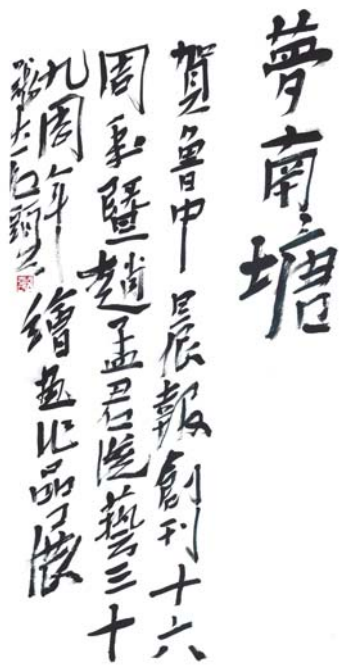 夢南塘
賀魯中晨報創刊十六
周年暨趙孟君從藝三十
九周年繪畫作品展
張大石頭